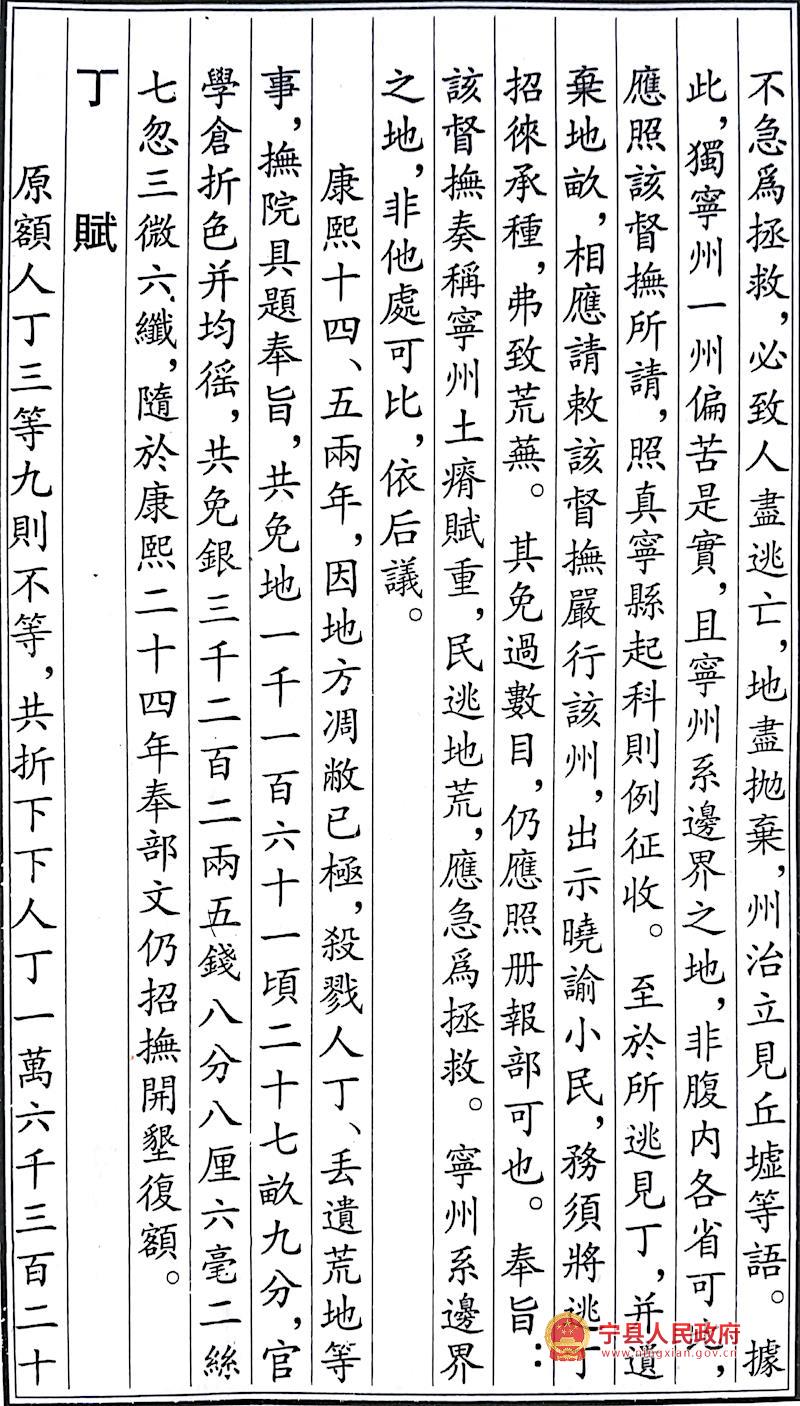 不急爲拯救，必致人盡逃亡，地盡抛棄，州治立見丘墟等語。據
此，獨寧州一州偏苦是實，且寧州系邊界之地，非腹内各省可比，
應照該督撫所請，照真寧縣起科則例征收。至於所逃見丁，并遺
棄地畝，相應請敕該督撫嚴行該州，出示曉諭小民，務須將逃丁
招徠承種，弗致荒蕪。其免過數目，仍應照册報部可也。奉旨：
該督撫奏稱寧州土瘠賦重，民逃地荒，應急爲拯救。寧州系邊界
之地，非他處可比，依后議。
康熙十四、五兩年，因地方凋敝已極，殺戮人丁、丢遺荒地等
事，撫院具題奉旨，共免地一千一百六十一頃二十七畝九分，官
學倉折色并均徭，共免銀三千二百二兩五錢八分八厘六毫二絲
七忽三微六纖，隨於康熙二十四年奉部文仍招撫開墾復額。
丁賦
原額人丁三等九則不等，共折下下人丁一萬六千三百二十
宁县人民政府
www.ningxian.gov.cn